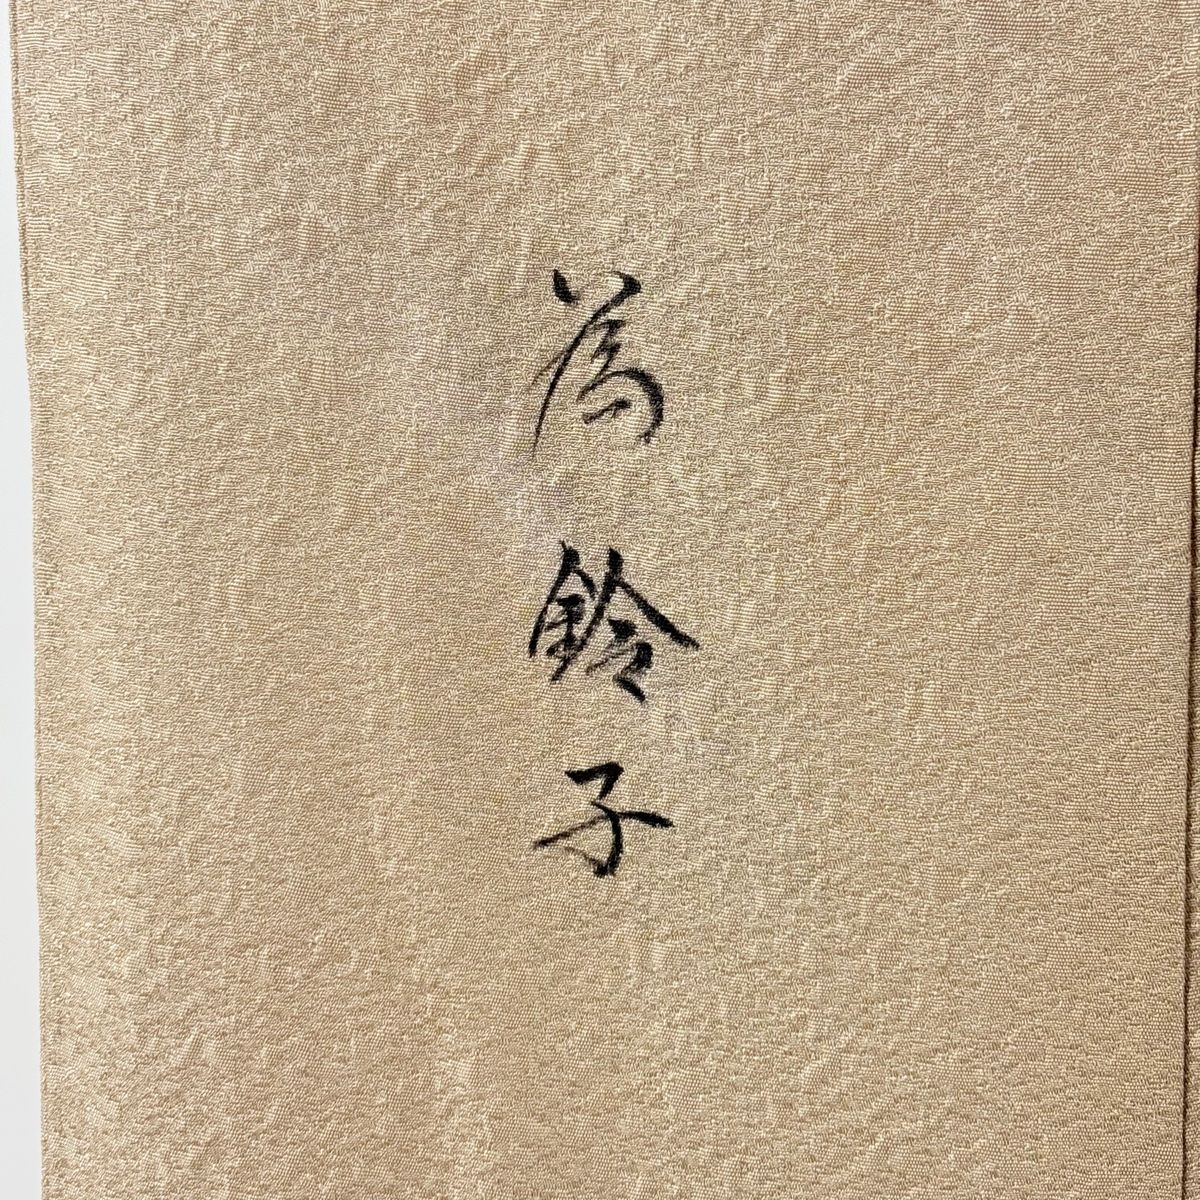 為鈴子